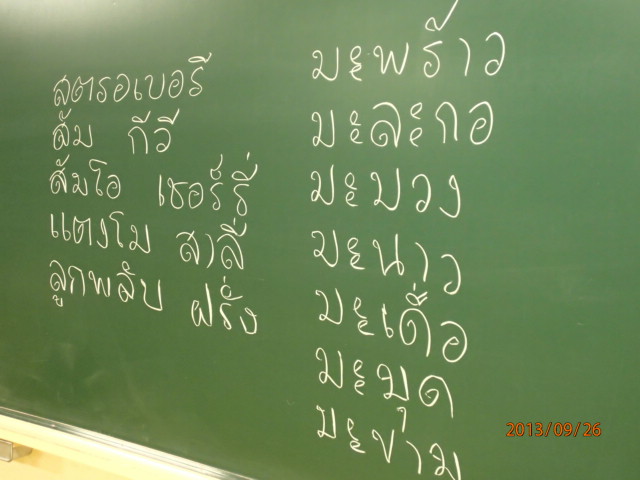 สตรอเบอรี
ส้ม กีวี
ส้มโอ เชอร์รี่
แตงโม สาลี่
ลูกพลับ ฝรั่ง
มะพร้าว
มะละกอ
มะมวง
มะนาว
มะเดื่อ
มะมุด
มะขาม
2013/09/26